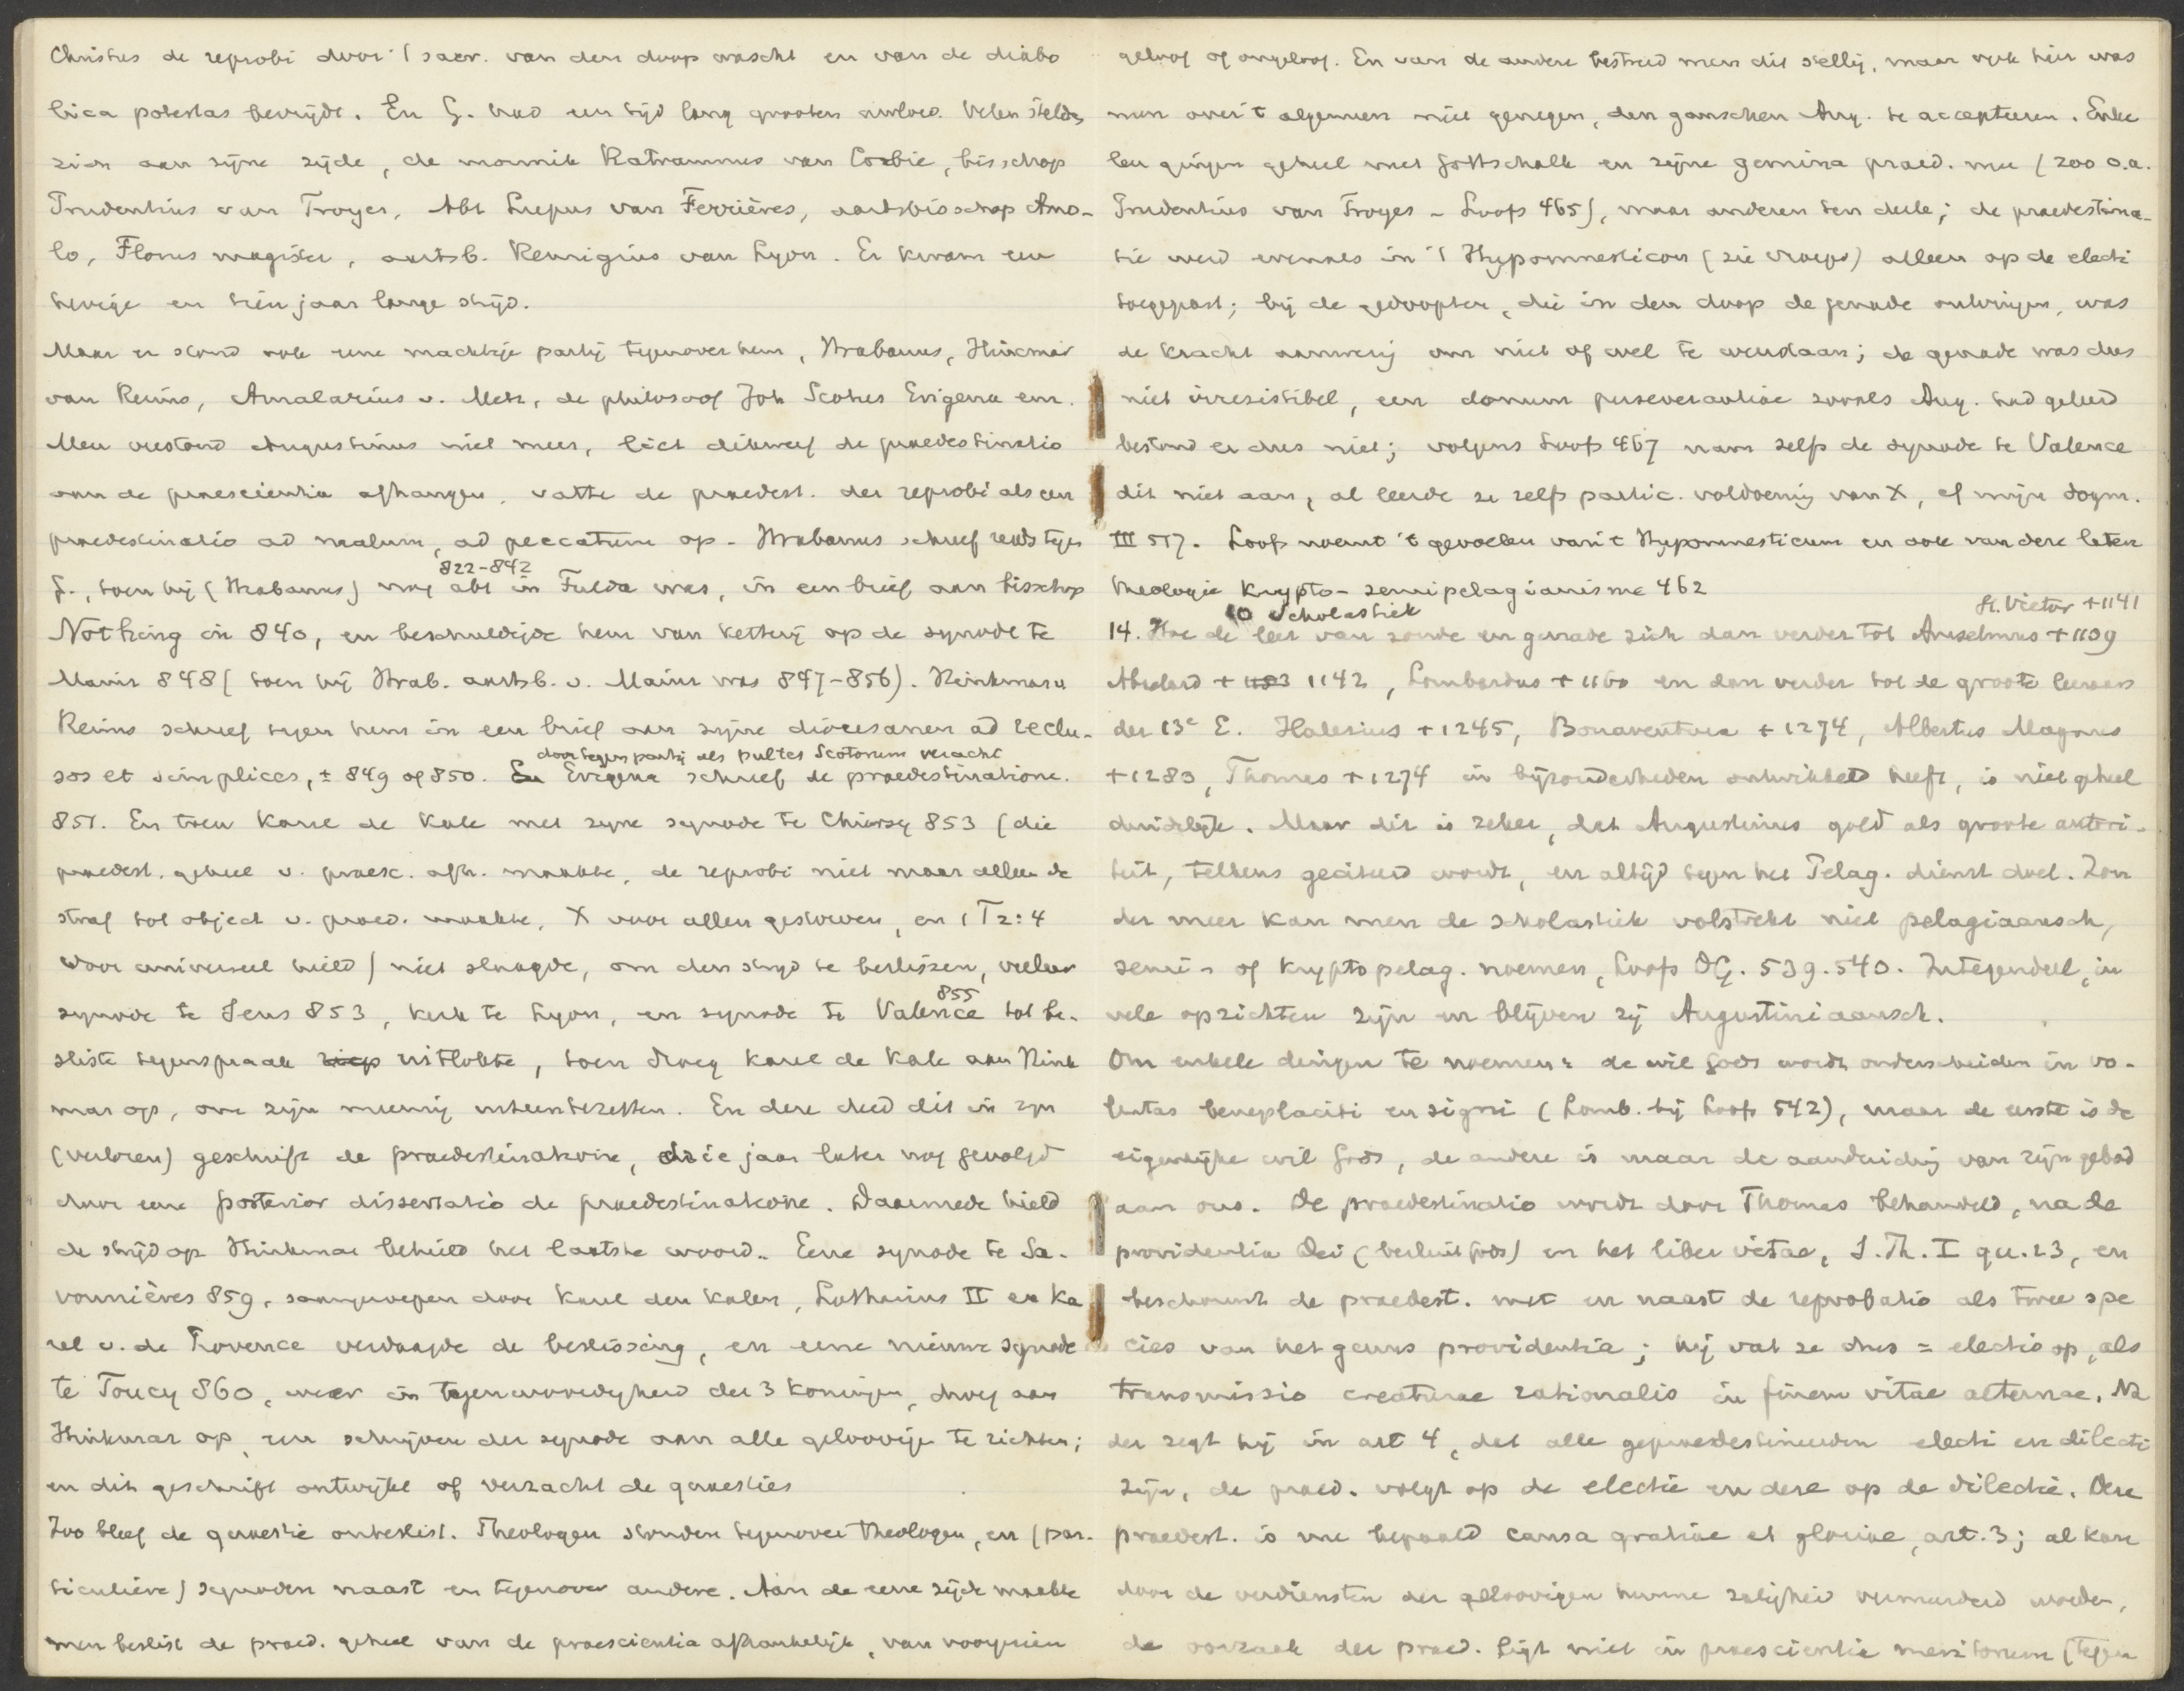 Christus de reprobi door 't sacr. van den doop wascht en van de diabo
lica potestas bevrijdt. En G. had een tijd lang grooten invloed. Velen stelden
zich aan zijne zijde, de monnik Ratramnus van Corbie, bisschop
Prudentius van Troyes, Abt Lupus van Ferrières, aartsbisschop Amo-
lo, Florus magister, aartsb. Remigius van Lyon. Er kwam een
hevige en tien jaar lange strijd.
Maar er stond ook eene machtige partij tegenover hem, Hrabanus, Hincmar
van Reims, Amalarius v. Metz, de philosoof Joh Scotus Erigena enz.
Men verstond Augustinus niet meer, liet dikwerf de praedestinatio
van de praescientia afhangen, vatte de praedest. der reprobi als een
praedestinatio ad malum, ad peccatum op - Hrabanus schreef reeds tegen
G., toen hij (Hrabanus) nog abt 822-842 in Fulda was, in een brief aan bisschop
Nothing in 840, en beschuldigde hem van ketterij op de synode te
Mainz 848 (toen hij Hrab. aartsb. v. Mainz was 847-856). Hinkmar v
Reims schreef tegen hem in een brief aan zijne diocesanen ad reclu-
sos et simplices, ± 849 of 850. En Erigena door tegenpartij als pultes Scotorum veracht schreef de praedestinatione.
851. En toen Karel de Kale met zijne synode te Chiersy 853 (die
praedest. geheel v. praesc. afh. maakte, de reprobi niet maar alleen de
straf tot object v. praed. maakte, X voor allen gestorven, en 1 T 2:4
voor universeel hield) niet slaagde, om den strijd te beslissen, veeleer
synode te Sens 853, kerk te Lyon, en synode te Valence 855 tot be-
sliste tegenspraak riep uitlokte, toen droeg Karel de Kale aan Hink
mar op, om zijn meening uiteentezetten. En deze deed dit in zijn
(verloren) geschrift de praedestinatione, drie jaar later nog gevolgd
door eene posterior dissertatio de praedestinatione. Daarmede hield
de strijd op Hinkmar behield het laatste woord. Eene synode te Sa-
vonnières 859, saamgeroepen door Karel den Kalen, Lotharius II en Ka
rel v. de Provence verdaagde de beslissing, en eene nieuwe synode
te Toucy 860, weer in tegenwoordigheid der 3 koningen, droeg aan
Hinkmar op, een schrijven der synode aan alle geloovigen te richten;
en dit geschrift ontwijkt of verzacht de quaesties
Zoo bleef de quaestie onbeslist. Theologen stonden tegenover theologen, en (par-
ticuliere) synoden naast en tegenover andere. Aan de eene zijde maakte
men beslist de praed. geheel van de praescientia afhankelijk, van voorzien
geloof of ongeloof. En van de andere bestreed men dit stellig, maar ook hier was
men over 't algemeen niet genegen, den ganschen Aug. te accepteeren. Enke
len gingen geheel met Gottschalk en zijne gemina praed. mee (zoo o.a.
Prudentius van Troyes - Loofs 465), maar anderen ten deele; de praedestina-
tie werd evenals in 't Hypomnesticon (zie vroeger) alleen op de electi
toegepast; bij de gedoopten, die in den doop de genade ontvingen, was
de kracht aanwezig om niet of wel te verstaan; de genade was dus
niet irresistibel, een donum perseverantiae zooals Aug. had geleerd
bestond er dus niet; volgens Loofs 467 nam zelfs de synode te Valence
dit niet aan, al leerde ze zelfs partic. voldoening van X, cf mijn dogm.
III 517. Loofs noemt 't gevoelen van 't Hypomnesticum en ook van deze latere
theologie Krypto-semipelagianisme 462
14. Hoe de leer van zonde en genade zich dan verder in Scholastiek tot Anselmus +1109 St. Victor +1141
Abelard + 1183 1142, Lombardus + 1160 en dan verder tot de groote leeraars
der 13e E. Halesius +1245, Bonaventura +1274, Albertus Magnus
+1280, Thomas +1274 in bijzonderheden ontwikkeld heeft, is niet geheel
duidelijk. Maar dit is zeker, dat Augustinus gold als groote autori-
teit, telkens geciteerd wordt, en altijd tegen het Pelag. dienst doet. Zon
der meer kan men de scholastiek volstrekt niet pelagiaansch,
semi- of kryptopelag. noemen, Loofs DG. 539.540. Integendeel, in
vele opzichten zijn en blijven zij Augustiniaansch.
Om enkele dingen te noemen: de wil Gods wordt onderscheiden in vo-
luntas beneplaciti en signi (Lomb. bij Loofs 542), maar de eerste is de
eigenlijke wil Gods, de andere is maar de aanduiding van zijn gebod
aan ons. De praedestinatio wordt door Thomas behandeld, na de
providentia Dei (besluit Gods) en het liber vitae, S. Th. I qu. 23, en
beschouwt de praedest. met en naast de reprobatio als twee spe
cies van het genus providentia; hij vat ze dus = electio op, als
transmissio creaturae rationalis in finem vitae aeternae. Na
der zegt hij in art 4, dat alle gepraedestineerden electi en dilecti
zijn, de praed. volgt op de electie en deze op de dilectie. Deze
praedest. is nu bepaald causa gratiae et gloriae, art. 3; al kan
door de verdiensten der geloovigen hunne zaligheid vermeerderd worden,
de oorzaak der praed. ligt niet in praescientia meritorum (tegen